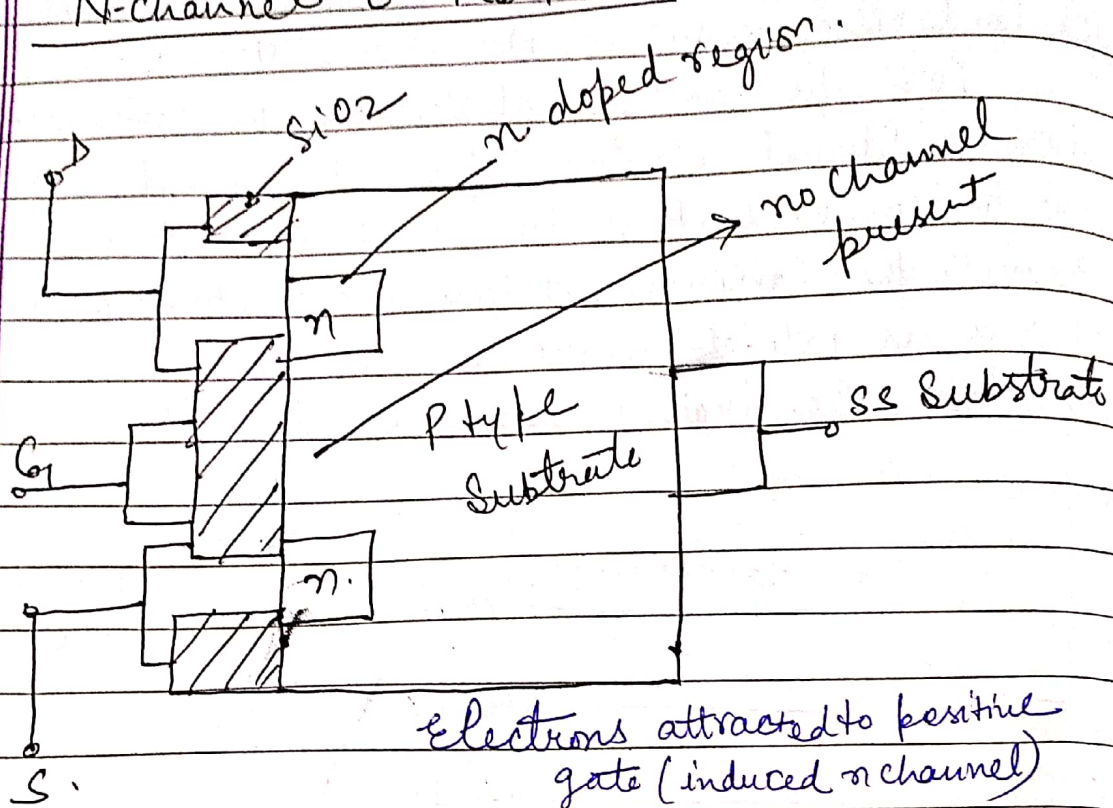 N-Channel
SiO2
n doped region.
D
no channel
present
n
P type
Substrate
SS Substrate
G
n.
S.
Electrons attracted to positive
gate (induced n channel)